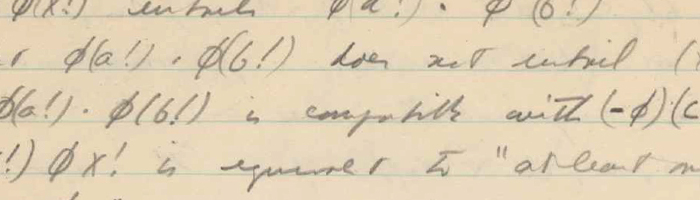 ϕ(x!) entails ϕ(a!) · ϕ(b!)
ϕ(a!) · ϕ(b!) does not entail (
ϕ(a!) · ϕ(b!) is compatible with (-ϕ)(c
!) ϕx! is equivalent to "at least